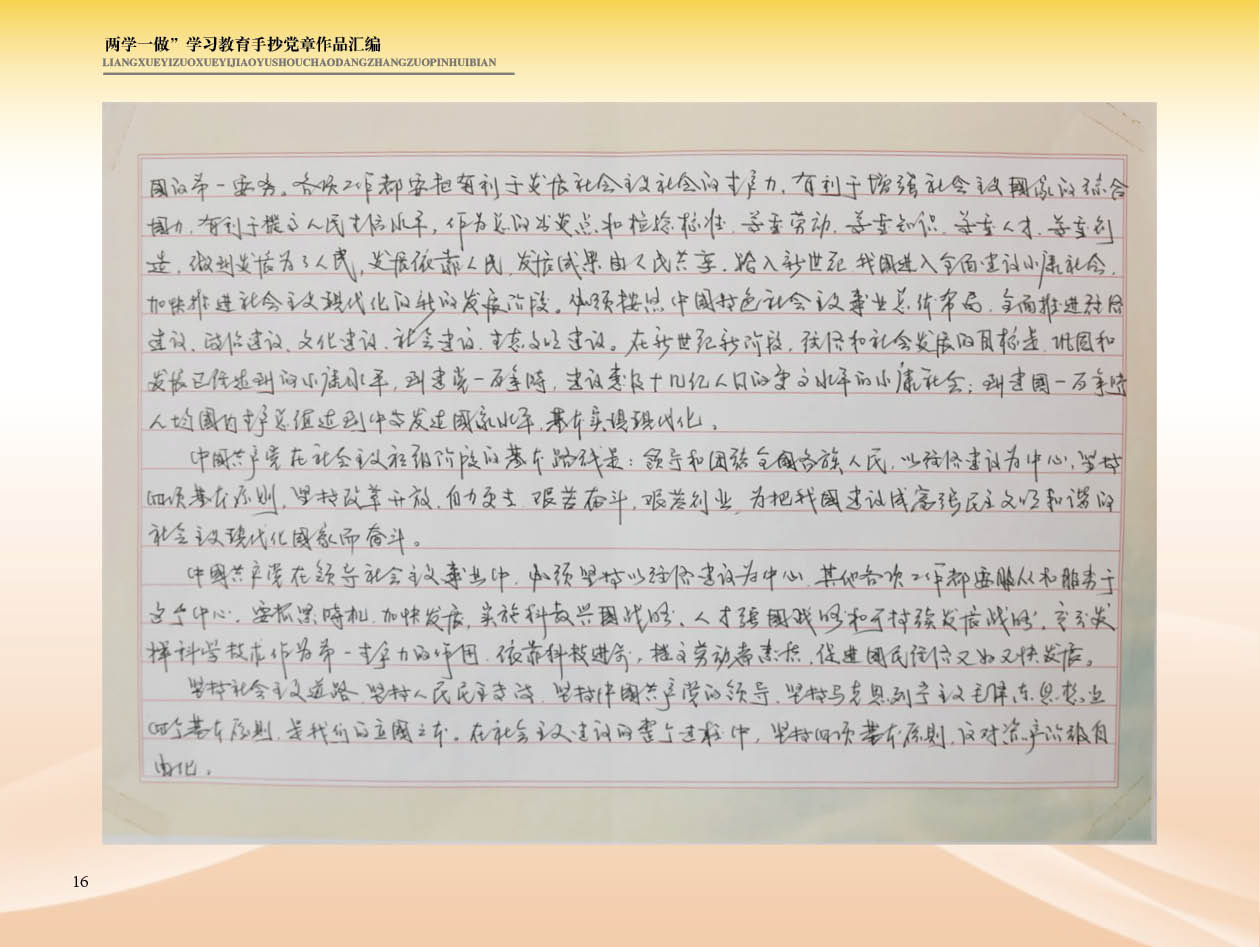 两学一做”学习教育手抄党章作品汇编
LIANGXUEYIZUOXUEYIJIAOYUSHOUCHAODANGZHANGZUOPINHUIBIAN
国的第一要务。各项工作都要把有利于发展社会主义社会的生产力,有利于增强社会主义國家的综合
國力,有利于提高人民生活水平,作为总的出发点和检验标准,尊重劳动,尊重知识,尊重人才,尊重创
造,做到发展为了人民,发展依靠人民,发展成果由人民共享。跨入新世纪,我國进入全面建设小康社会、
加快推进社会主义现代化的新的发展阶段。必须按照中国特色社会主义事业总体布局,全面推进经济
建设、政治建设、文化建设、社会建设、生态文明建设。在新世纪新阶段,经济和社会发展的目标是,巩固和
发展已经达到的小康水平,到建党一百年時,建设惠及十几亿人口的更高水平的小康社会;到建國一百年時
人均國内生产总值达到中等发达國家水平,基本实现现代化。
中國共产党在社会主义初级阶段的基本路线是:领导和团结全國各族人民,以经济建设为中心,坚持
四项基本原则,坚持改革开放,自力更生,艰苦奋斗,艰苦创业,为把我國建设成富强民主文明和谐的
社会主义现代化國家而奋斗。
中國共产党在领导社会主义事业中,必须坚持以经济建设为中心,其他各项工作都要服从和服务于
这个中心。要抓紧時机,加快发展,实施科教兴國战略、人才强國战略和可持续发展战略,充分发
挥科学技术作为第一生产力的作用,依靠科技进步,提高劳动者素质,促进國民经济又好又快发展。
坚持社会主义道路,坚持人民民主专政,坚持中國共产党的领导,坚持马克思列宁主义毛泽东思想这
四个基本原则,是我们的立國之本。在社会主义建设的整个过程中,坚持四项基本原则,反对资产阶级自
由化。
16